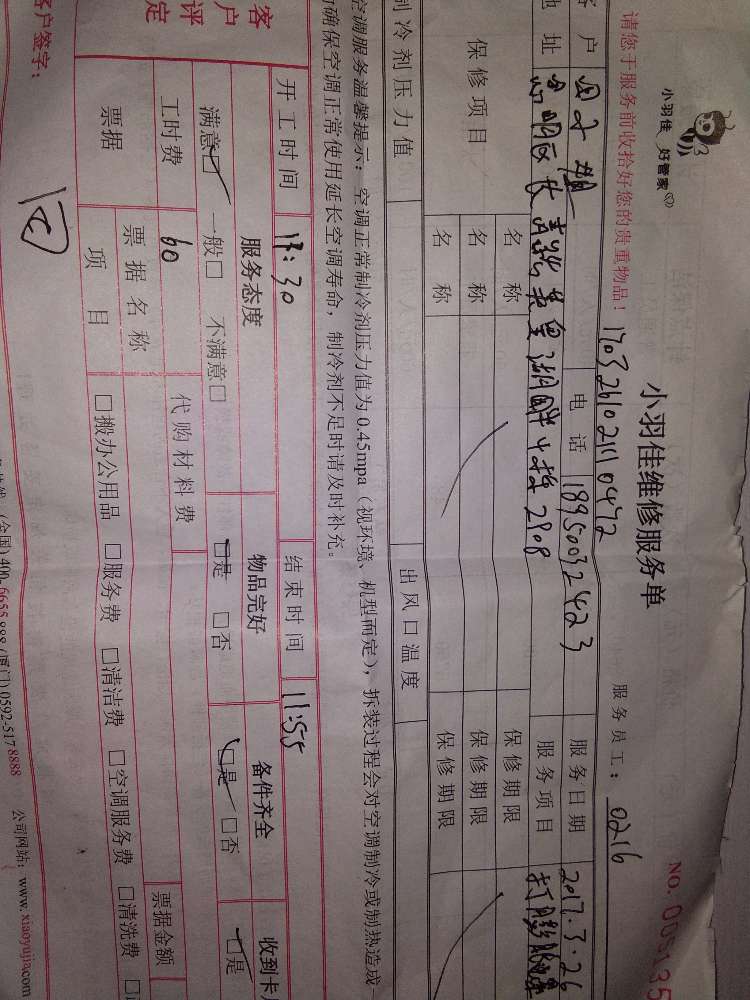 小羽佳 好管家
小羽佳维修服务单
NO. 005135
请您于服务前收拾好您的贵重物品！
17032610211110472
服务员工： 0216
客户
电话 18950032423
服务日期 2017.3.26
地址 湖畔 2908
服务项目
保修项目
名称
保修期限
名称
保修期限
名称
保修期限
制冷剂压力值
出风口温度
空调服务温馨提示：空调正常制冷剂压力值为0.45mpa（视环境、机型而定），拆装过程会对空调制冷或制热造成
确保空调正常使用延长空调寿命，制冷剂不足时请及时补充。
开工时间 11:30
结束时间 11:55
客户评定
服务态度
物品完好
备件齐全
收到卡
满意□ 一般□ 不满意□
□是 □否
□是 □否
□是
工时费 60
代购材料费
票据
票据名称
票据金额
项目
□搬办公用品 □服务费 □清洁费 □空调服务费 □清洗费
客户签字：
(全国)400-6655-888 (厦门)0592-5178888 公司网站：www.xiaoyujia.com